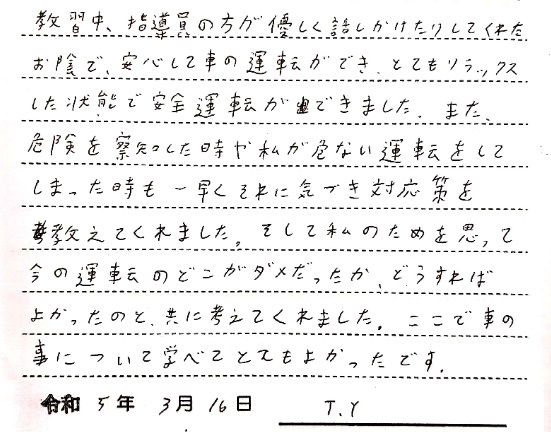 教習中、指導員の方が優しく話しかけたりしてくれた
お陰で、安心して車の運転ができ、とてもリラックス
した状態で安全運転ができました。また、
危険を察知した時や私が危ない運転をして
しまった時も一早くそれに気づき対応策を
教えてくれました。そして私のためを思って
今の運転のどこがダメだったか、どうすれば
よかったのと、共に考えてくれました。ここで車の
事について学べてとてもよかったです。
令和 5年 3月 16日 T.Y